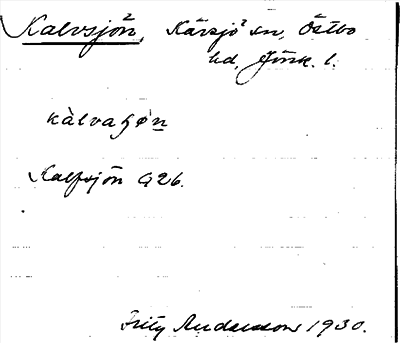 Kalvsjön, Kävsjö sn, Östbo
hd, Jönk. l.
kàlvaʃø̀n
Kalfsjön G26.
Fritz Andersson 1930.